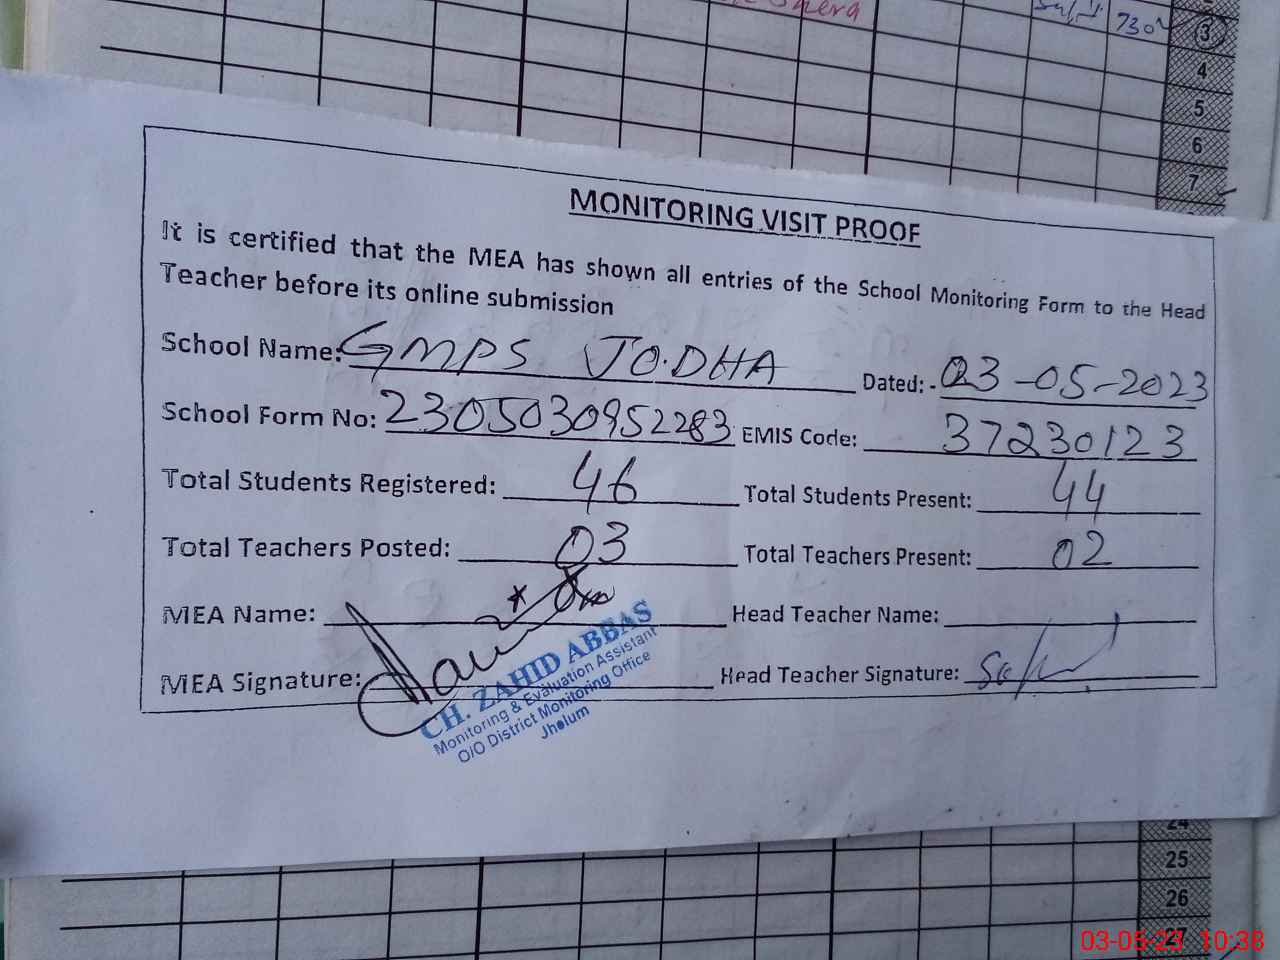 730
3
4
5
6
7
MONITORING VISIT PROOF
It is certified that the MEA has shown all entries of the School Monitoring Form to the Head
Teacher before its online submission
School Name: GMPS JO.DHA Dated: - 03-05-2023
School Form No: 2305030952283 EMIS Code: 37230123
Total Students Registered: 46 Total Students Present: 44
Total Teachers Posted: 03 Total Teachers Present: 02
MEA Name: Head Teacher Name:
MEA Signature: Head Teacher Signature:
CH. ZAHID ABBAS
Monitoring & Evaluation Assistant
O/O District Monitoring Office
Jhelum
24
25
26
27
03-05-23 10:38